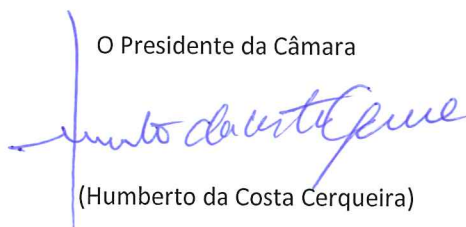 O Presidente da Câmara
Humberto da Costa Cerqueira
(Humberto da Costa Cerqueira)